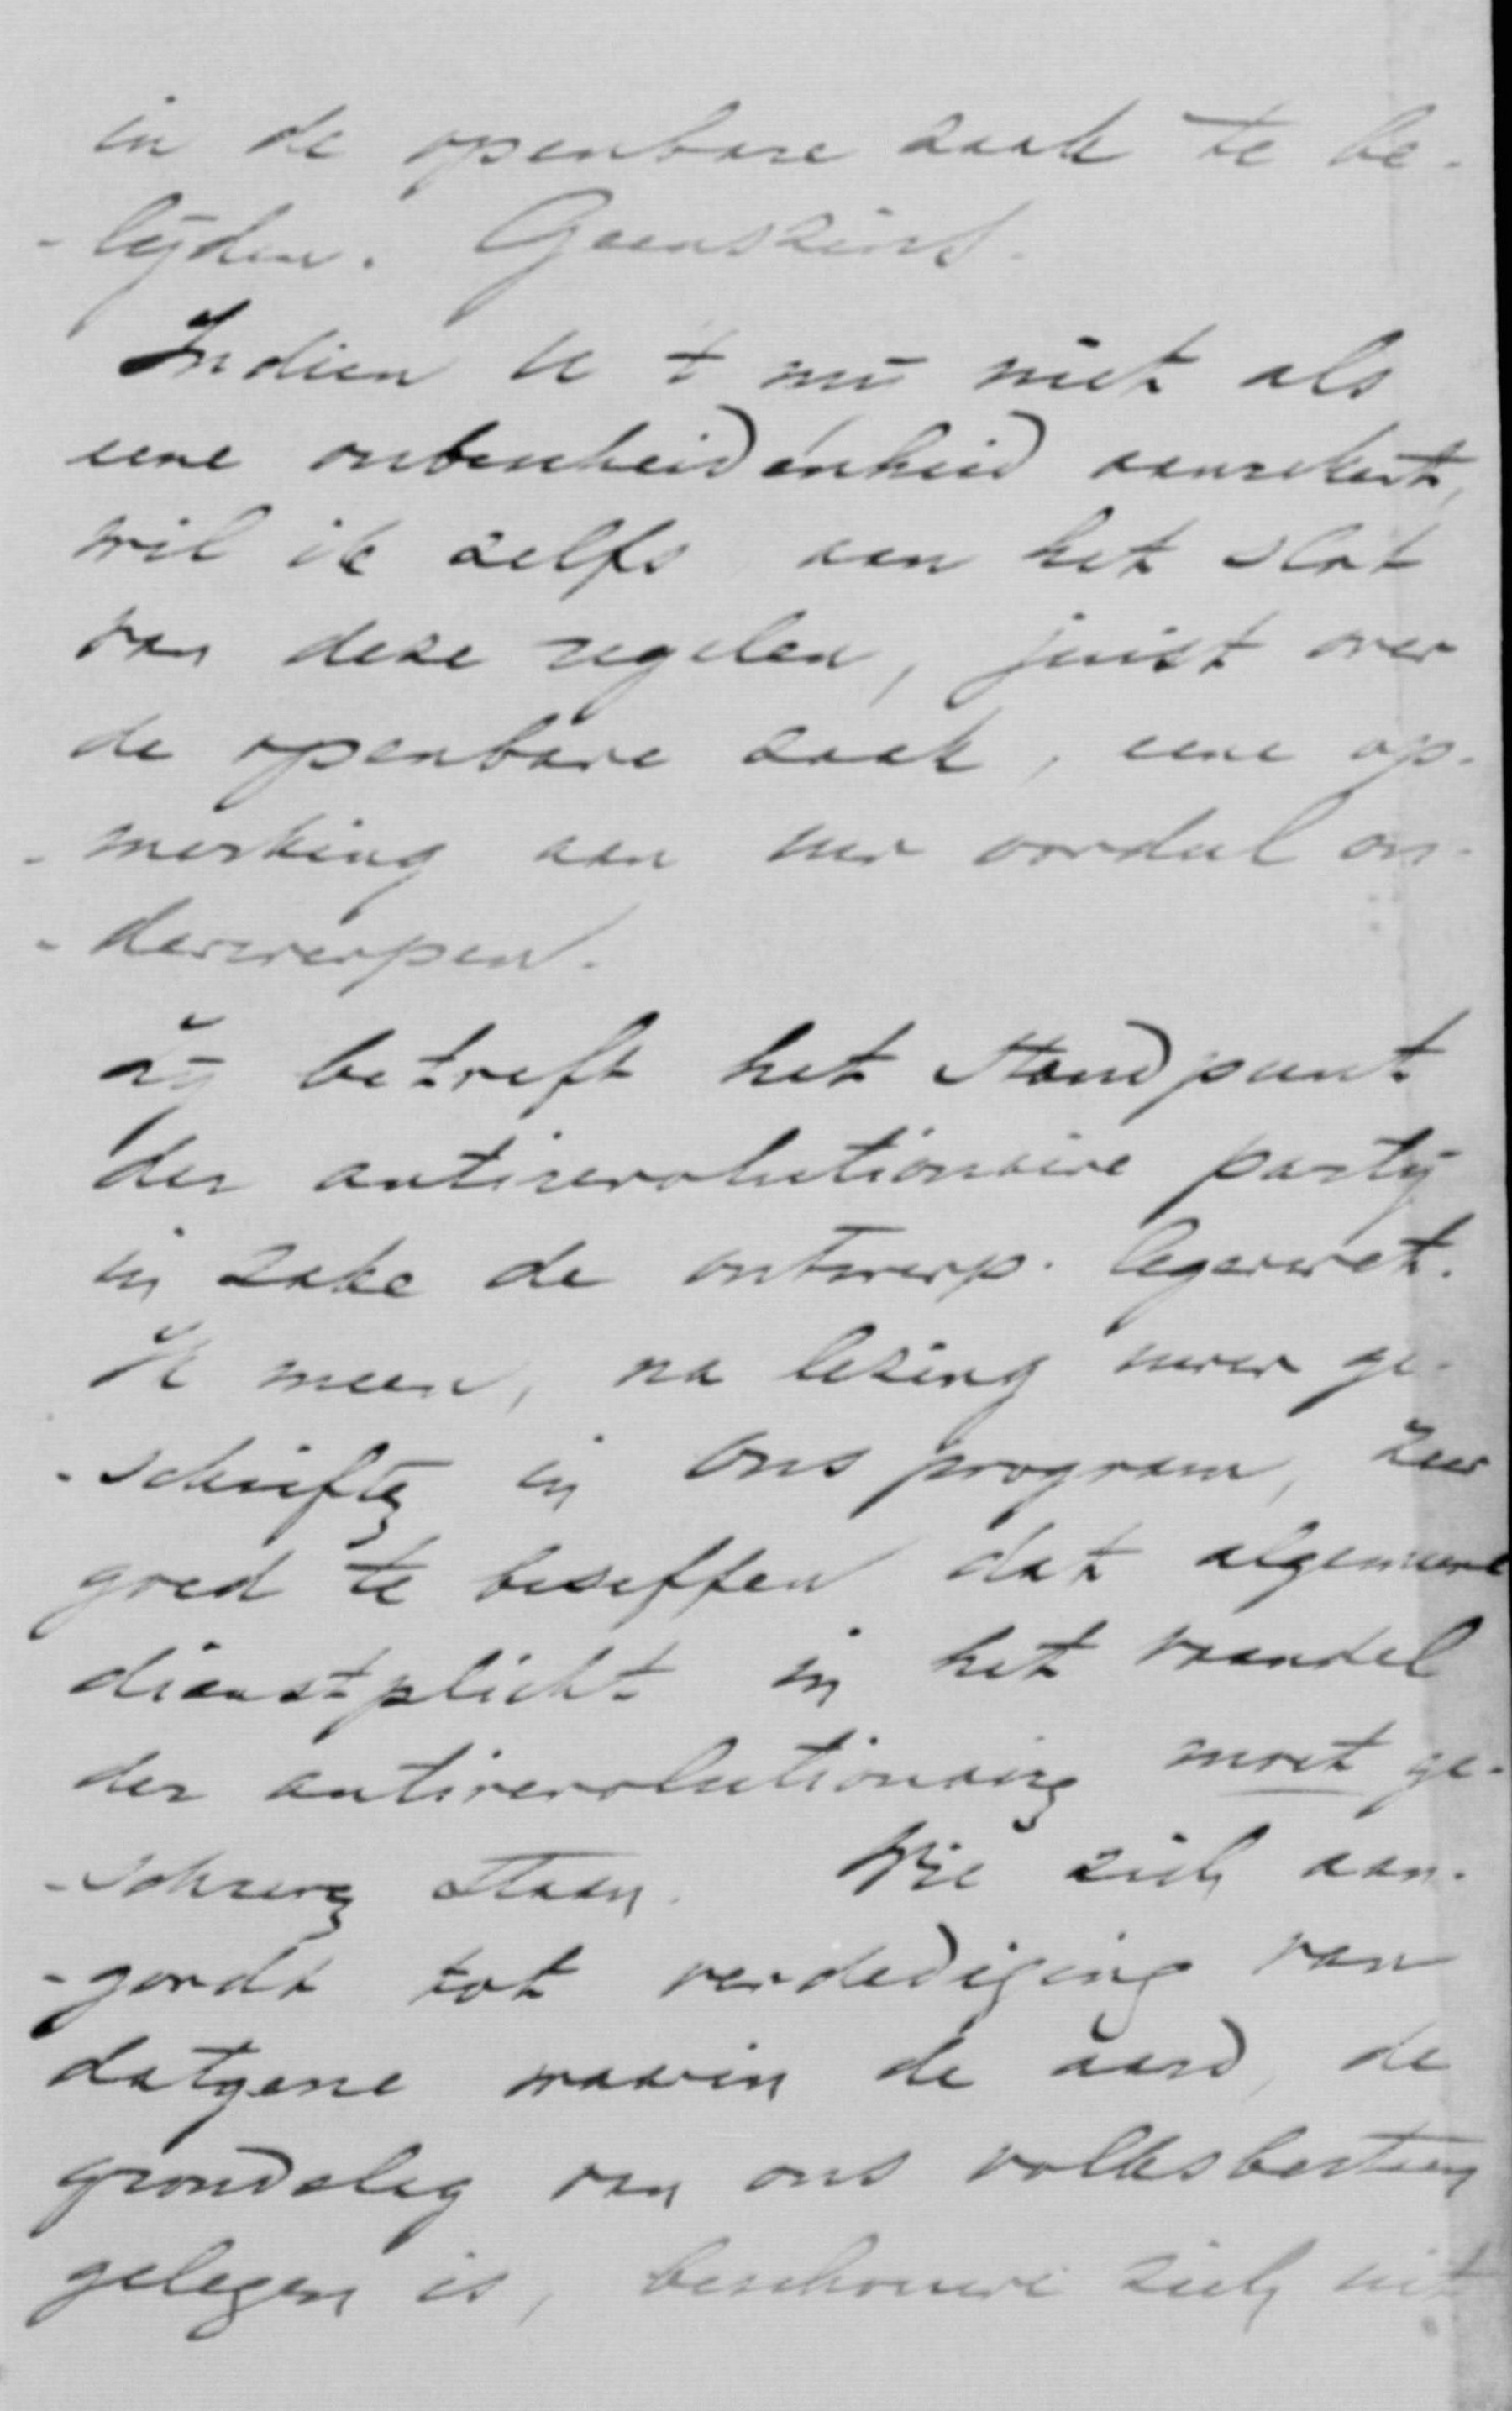 in de openbare zaak te be-
-lijden. Geenszins.
Indien U 't mij niet als
eene onbescheidenheid aanrekent,
wil ik zelfs aan het slot
van deze regelen, juist over
de openbare zaak, eene op-
-merking aan uw oordeel on-
-derwerpen.
Zij betreft het standpunt
der antirevolutionaire partij
in zake de ontwerp-legerwet.
Ik meen, na lezing uwer ge-
-schriften in Ons program, zeer
goed te beseffen dat algemeene
dienstplicht in het vaandel
der antirevolutionairen moet ge-
-schreven staan. Wie zich aan-
-gordt tot verdediging van
datgene waarin de aard, de
grondslag van ons volksbestaan
gelegen is, beschouwe zich